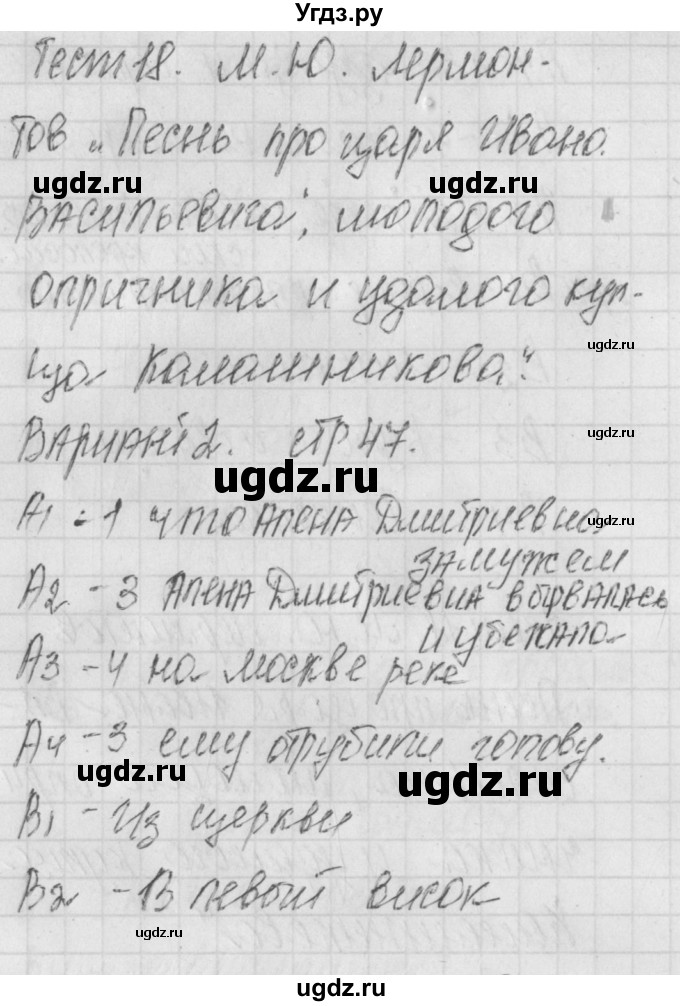 Угдз.ру
Тест 18. М.Ю. Лермон-
тов „Песнь про царя Ивана
ugdz.ru
ugdz.ru
Васильевича, молодого
опричника и удалого куп-
ugdz.ru
ца Калашникова“.
Вариант 2. стр 47.
ugdz.ru
А1 - 1 что Алена Дмитриевна
ugdz.ru
замужем
А2 - 3 Алена Дмитриевна вырвалась
и убежала
А3 - 4 на Москве реке
А4 - 3 ему отрубили голову.
ugdz.ru
ugdz.ru
В1 - Из церкви
В2 - В левый висок
ugdz.ru
Угдз.ру